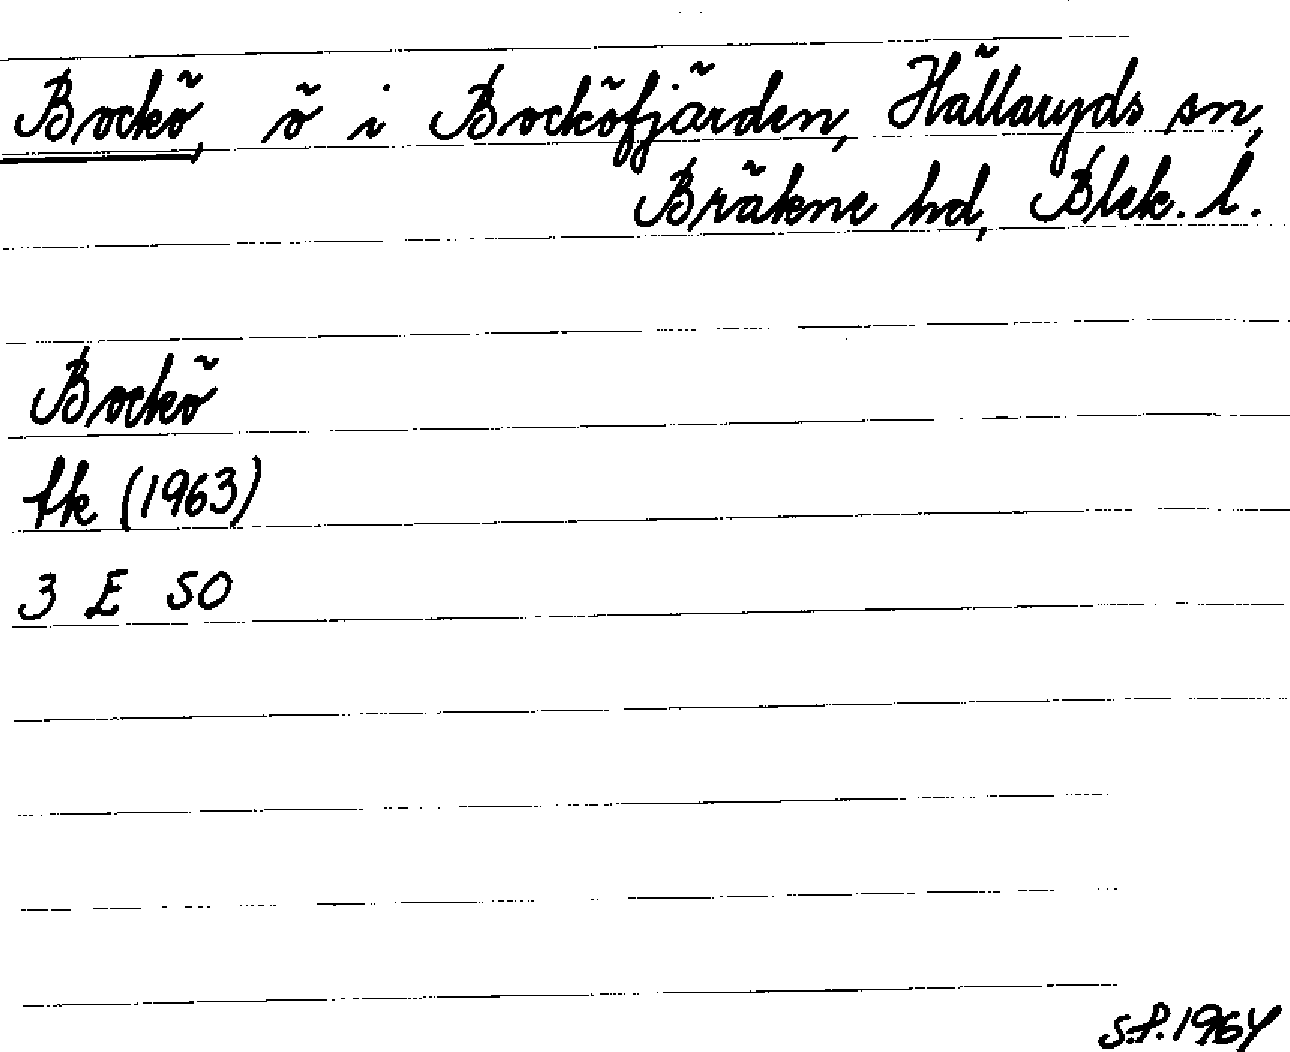 Bockö, ö i Bocköfjärden, Hällaryds sn,
Bräkne hd, Blek. l.
Bockö
fk (1963)
3 E SO
S.P. 1964